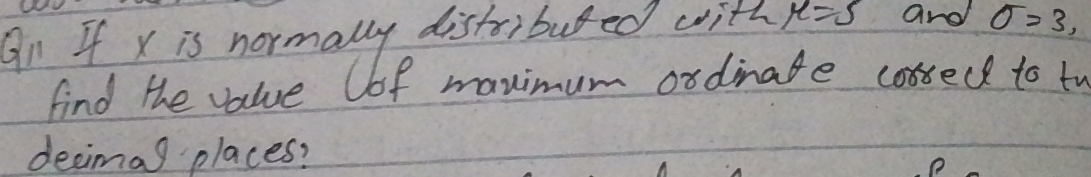 Q11 If x is normally distributed with μ=5 and σ=3,
find the value of maximum ordinate correct to
decimal places?